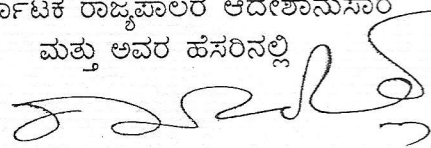 ರ್ನಾಟಕ ರಾಜ್ಯಪಾಲರ ಆದೇಶಾನುಸಾರ
ಮತ್ತು ಅವರ ಹೆಸರಿನಲ್ಲಿ